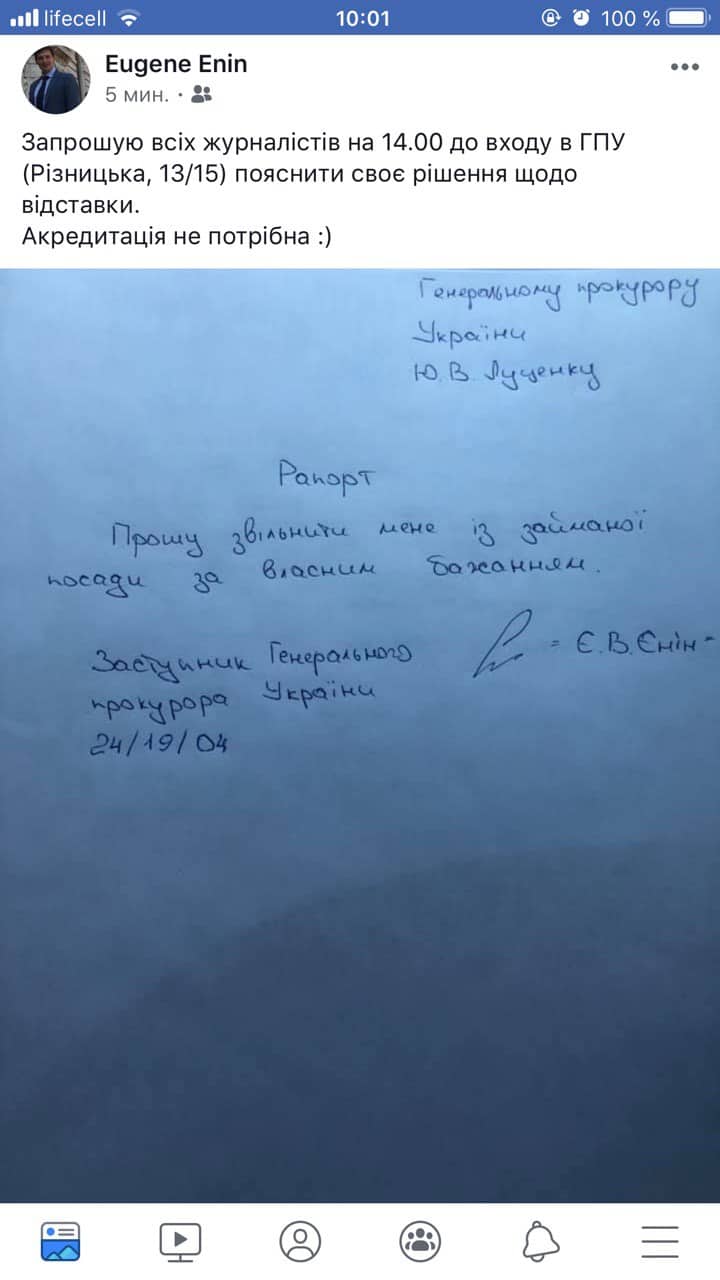 lifecell
10:01
100 %
Eugene Enin
5 мин.
Запрошую всіх журналістів на 14.00 до входу в ГПУ
(Різницька, 13/15) пояснити своє рішення щодо
відставки.
Акредитація не потрібна :)
Генеральному прокурору
України
Ю.В. Луценку
Рапорт
Прошу звільнити мене із займаної
посади за власним бажанням.
Заступник Генерального
прокурора України
24/19/04
Є.В.Єнін